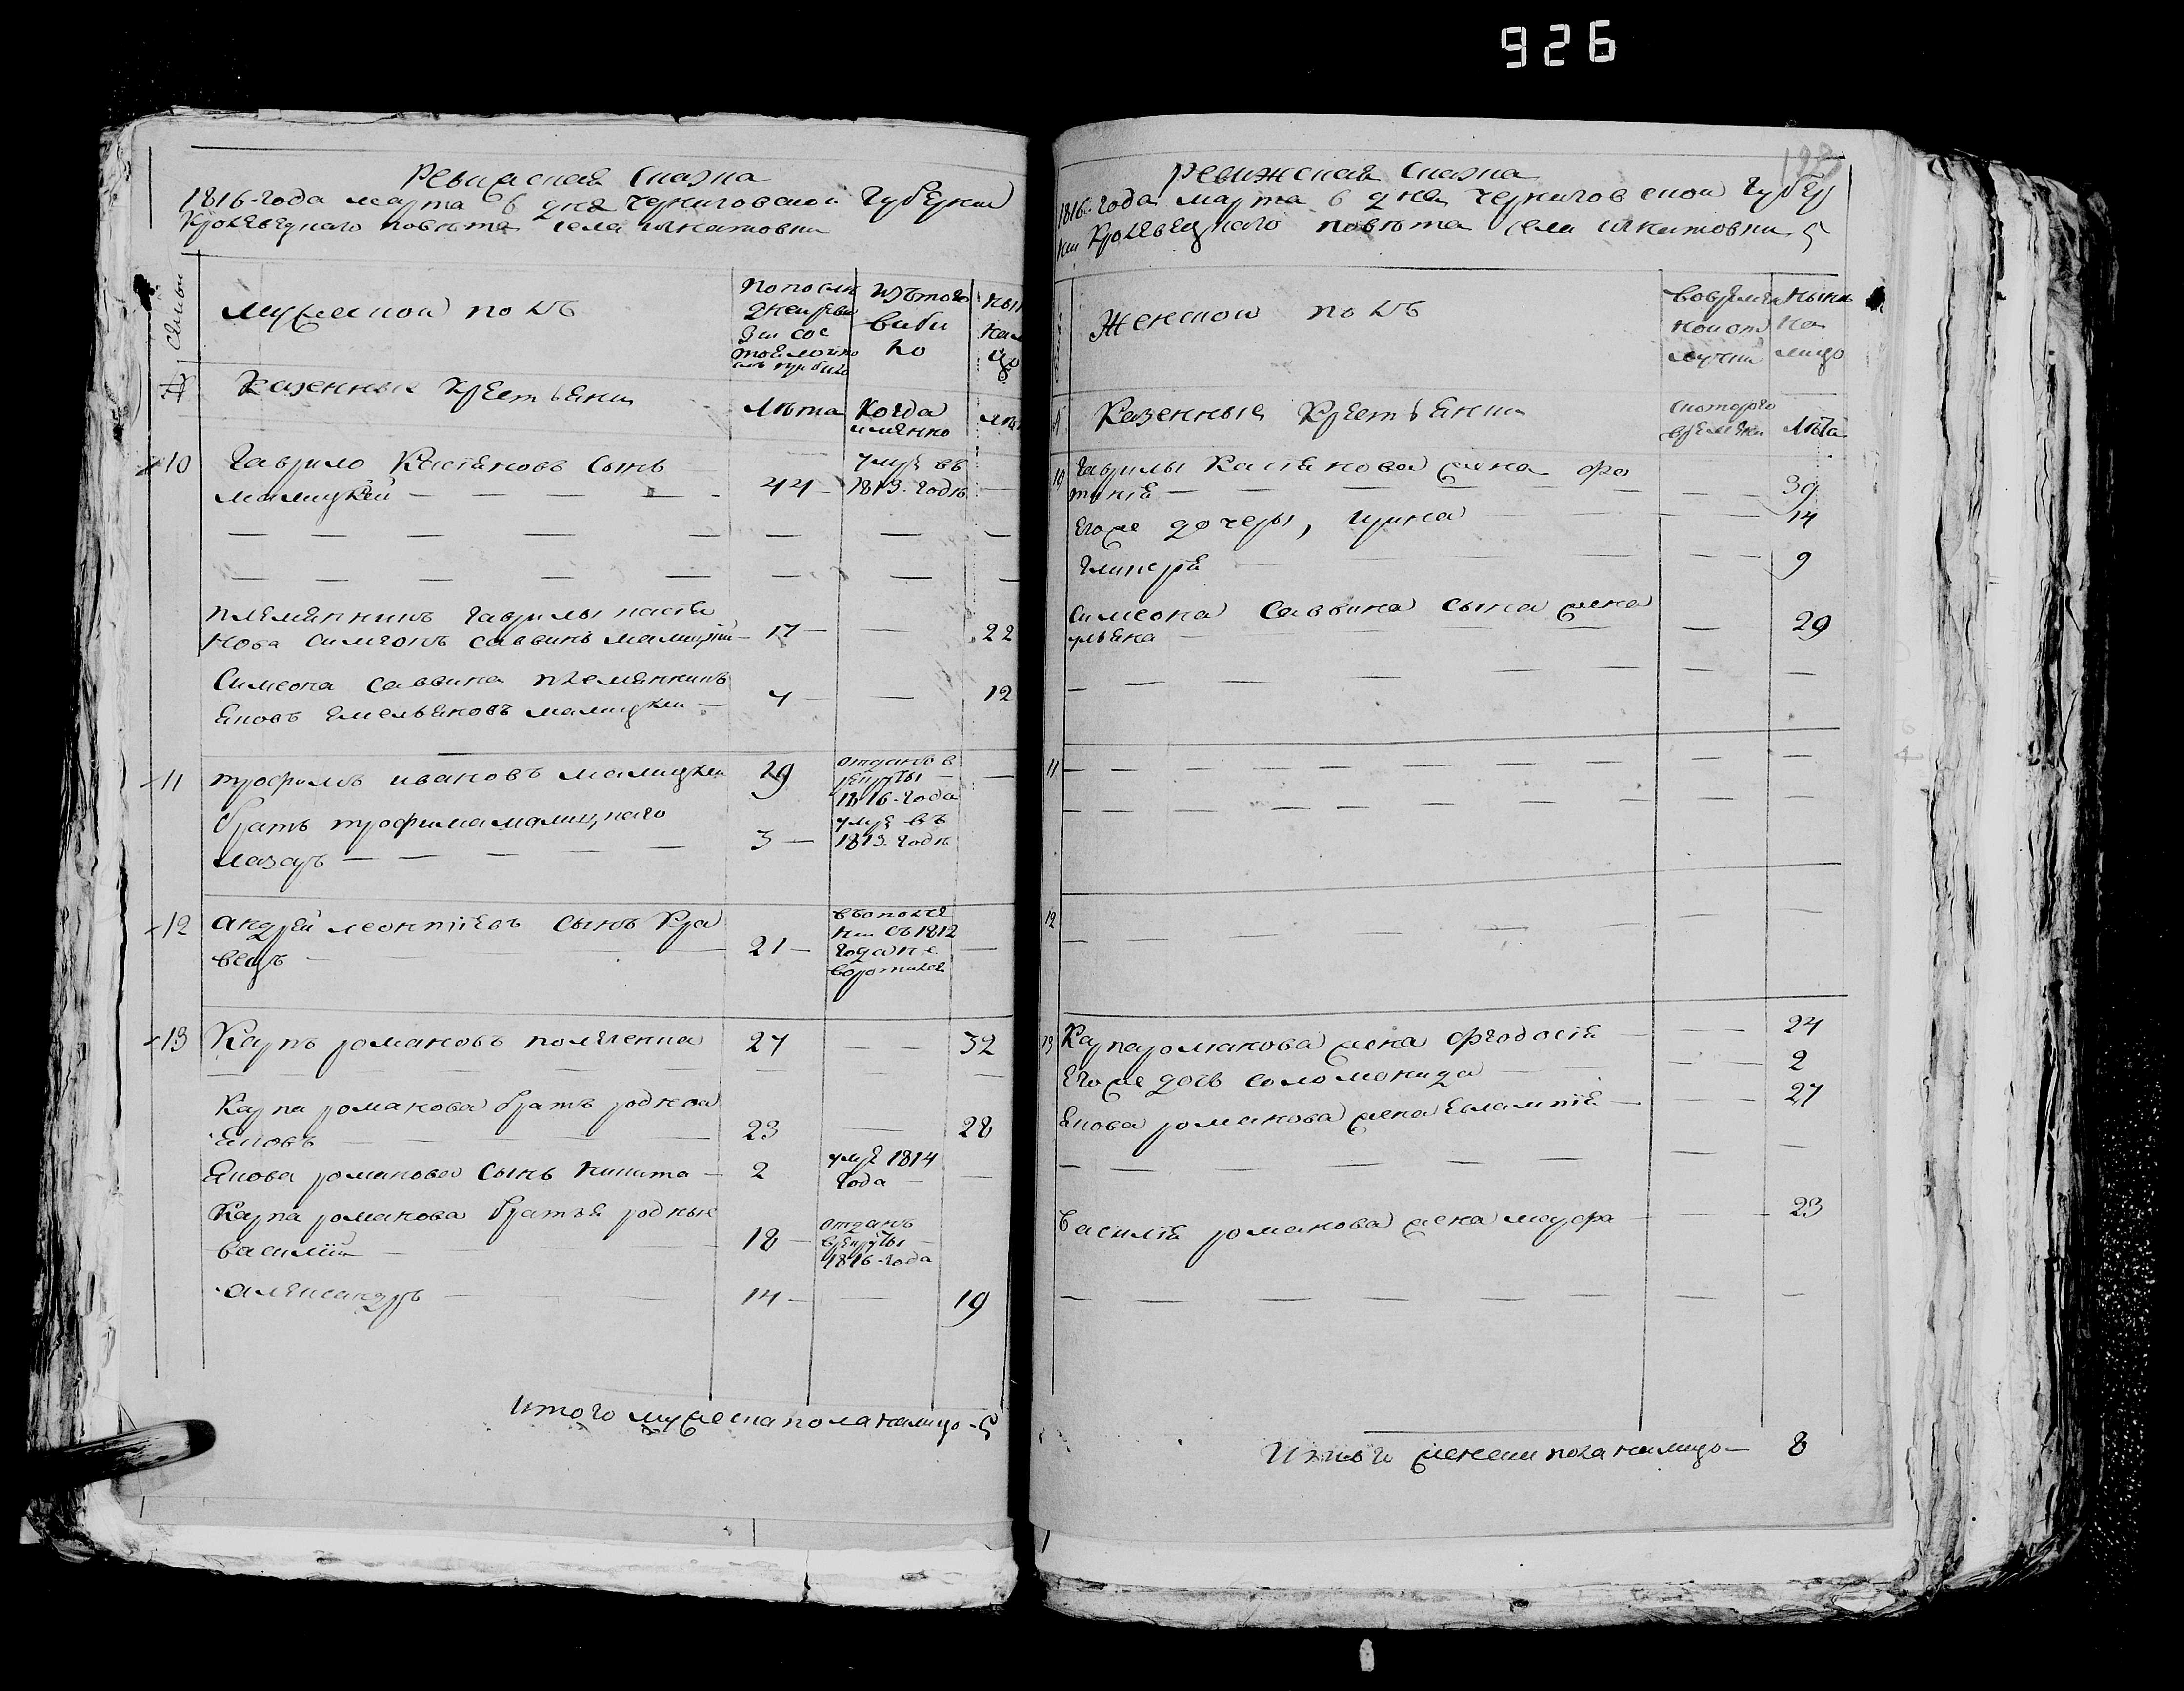 926
Ревиская сказка
1816-года марта 6 дня черниговской губернии
Кролевецкаго повета села
Семьи
мужеской полъ
По после
дней реви
зіи сос
тояло
изъ того
виби
ло
ны
на
ли
№
Казенные крестьяни
Лѣта
Когда
имянно
лѣ
10 Гаврило Касіяновъ сынъ
малицкій — 44 — умре въ 1813. годѣ —
племянникъ гаврилы касія
нова симеонъ саввинъ малицкій — 17 — — 22
Симеона саввина племянникъ
яковъ емельяновъ малицкій — 7 — — 12
11 трофимъ ивановъ малицкій 29 отданъ в
рекруты —
1816-года
братъ трофима малицкаго
лазаръ — 3 — умре въ
1813. годѣ
12 андрей леонтіевъ сынъ кра
вецъ — 21 — въополче
нии съ 1812
года не
воротился
13 Карпъ романовъ 27 — — 32
Карпа романова братъ родной
яковъ — 23 — 28
якова романова сынъ никита — 2 умре 1814
года —
Карпа романова братья родные
василій — 18 — отданъ
врекруты —
1816-года
александръ — 14 — — 19
итого мужеска пола налицо - 5
123
Ревижская сказка
1816-года марта 6 дня черниговской губер
нии Кролевецкаго повѣта села 5
Женской полъ
вовремян
ной от
лучки
ныни
на
лицо
№
Казенныя крестьянии
скоторого
времяни
Лѣта
10 гаврилы Касіянова жена фо
тинія — 39
Егоже дочеры, ирина — 14
гликерія — 9
симеона саввина сына жена
ульяна — 29
11
12
13 Карпа романова жена феодосія — 24
Егоже дочь соломонида — 2
якова романова жена евлампія — 27
василія романова жена мавра — 23
Итого женска пола налицо — 8